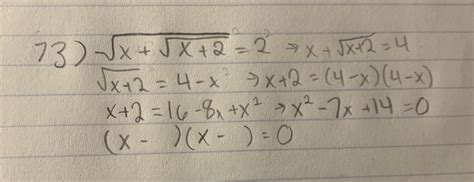 73) √(x + √(x+2)) = 2 → x + √(x+2) = 4
√(x+2) = 4 - x → x+2 = (4-x)(4-x)
x+2 = 16 - 8x + x² → x² - 7x + 14 = 0
(x -  )(x -  ) = 0